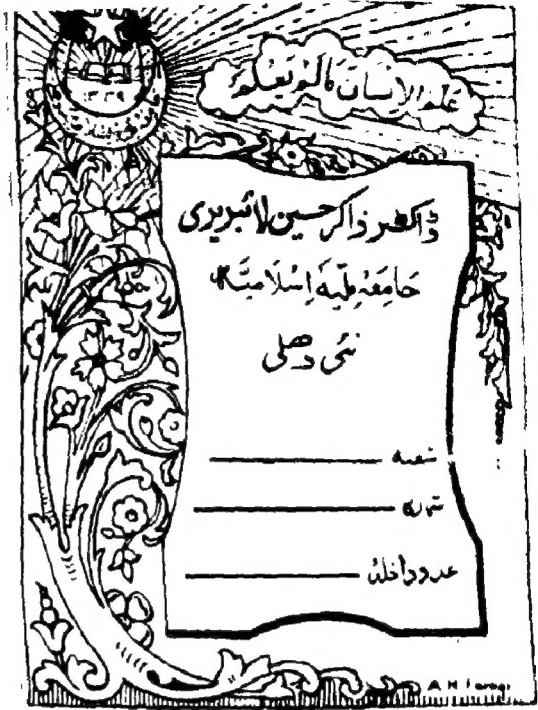 علم الإنسان مالم يعلم
۱۳۳۹
ڈاکٹر ذاکر حسین لائبریری
جامعہ ملیہ اسلامیہ
نئی دھلی
شعبہ
شمارہ
عدد داخلہ
A. H. Faroqi